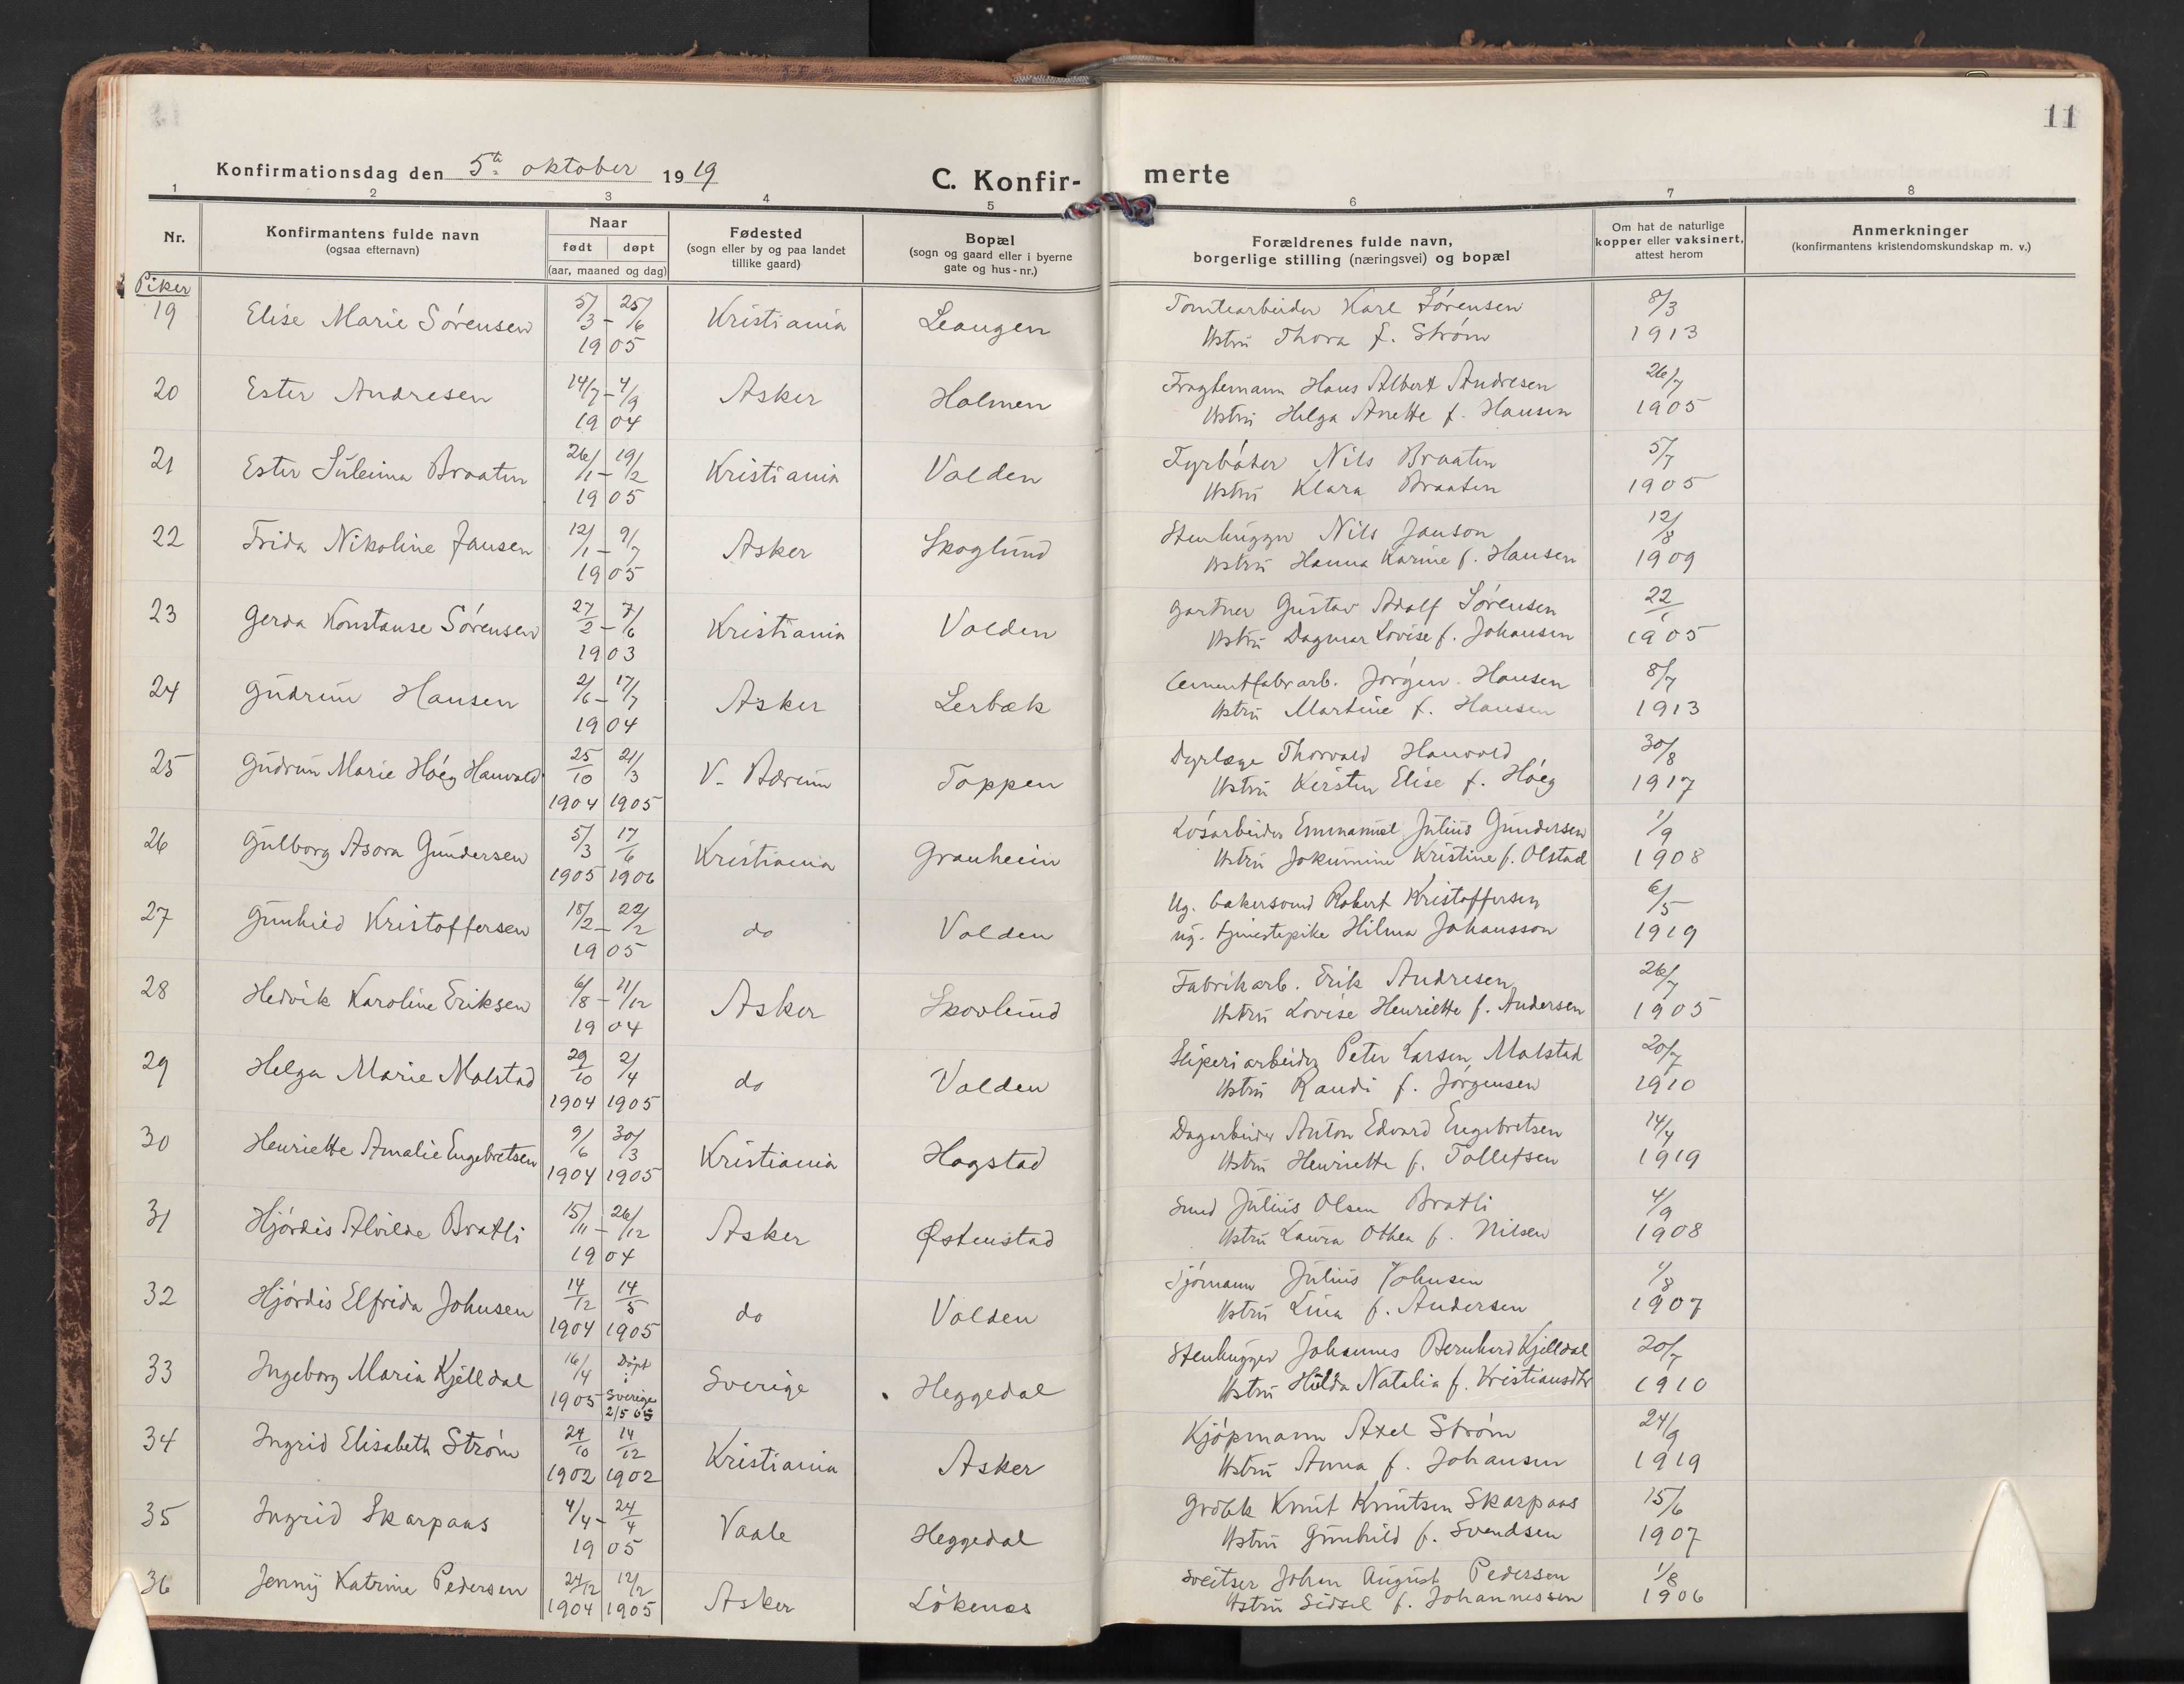 11
Konfirmationsdag den 5te oktober 1919
C. Konfir- merte
1 2 3 4 5 6 7 8
Nr.
Konfirmantens fulde navn
(ogsaa efternavn)
Naar
født døpt
(aar, maaned og dag)
Fødested
(sogn eller by og paa landet
tillike gaard)
Bopæl
(sogn og gaard eller i byerne
gate og hus-nr.)
Forældrenes fulde navn,
borgerlige stilling (næringsvei) og bopæl
Om hat de naturlige
kopper eller vaksinert,
attest herom
Anmerkninger
(konfirmantens kristendomskundskap m. v.)
Piker
19 Elise Marie Sörensen 5/3 – 25/6 1905 Kristiania Leangen Tomtearbeider Karl Sörensen 8/3
Hstru Thora f. Ström 1913
20 Ester Andresen 14/7 – 4/9 1904 Asker Holmen Fragtemann Hans Albert Andresen 26/7
Hstru Helga Anette f. Hansen 1905
21 Ester Suleima Braaten 26/1 – 19/2 1905 Kristiania Valden Fyrböter Nils Braaten 5/7
Hstru Klara Braaten 1905
22 Frida Nikoline Jansen 12/1 – 9/7 1905 Asker Skoglund Stenhugger Nils Janson 12/8
Hstru Hanna Karine f. Hansen 1909
23 Gerda Konstanse Sörensen 27/2 – 7/6 1903 Kristiania Valden Gartner Gustav Adolf Sörensen 22/1
Hstru Dagmar Lovise f. Johansen 1905
24 Gudrun Hansen 2/6 – 17/7 1904 Asker Lerbæk Cementfabrarb. Jörgen Hansen 8/7
Hstru Martine f. Hansen 1913
25 Gudrun Marie Höeg Hauvald 25/10 1904 21/3 1905 V. Bærum Toppen Dyrlæge Thorvald Hauvald 30/8
Hstru Kirsten Elise f. Höeg 1917
26 Gulborg Asora Gundersen 5/3 1905 17/6 1906 Kristiania Granheim Lösarbeider Emmanuel Julius Gundersen 1/9
Hstru Jokumine Kristine f. Olstad 1908
27 Gunhild Kristoffersen 18/2 – 22/2 1905 do Valden Ug. bakersvend Robert Kristoffersen 6/5
ug. tjenestepike Hilma Johansson 1919
28 Hedvik Karoline Eriksen 6/8 – 21/12 1904 Asker Skovlund Fabrikarb. Erik Andresen 26/7
Hstru Lovise Henriette f. Andersen 1905
29 Helga Marie Malstad 29/10 1904 2/4 1905 do Valden Sliperiarbeider Peter Larsen Malstad 20/7
Hstru Randi f. Jörgensen 1910
30 Henriette Amalie Engebretsen 9/6 1904 30/3 1905 Kristiania Hogstad Dagarbeider Anton Edvard Engebretsen 14/4
Hstru Henriette f. Tollefsen 1919
31 Hjördis Alvilde Bratli 15/11 – 26/12 1904 Asker Østenstad Smed Julius Olsen Bratli 4/9
Hstru Laura Othea f. Nilsen 1908
32 Hjördis Elfrida Johnsen 14/12 1904 14/5 1905 do Valden Sjömann Julius Johnsen 1/8
Hstru Lina f. Andersen 1907
33 Ingeborg Maria Kjelldal 16/4 1905 Döpt i Sverige 2/5 05 Sverige Heggedal Stenhugger Johannes Bernhard Kjelldal 20/7
Hstru Hilda Natalia f. Kristiansdtr 1910
34 Ingrid Elisabeth Ström 24/10 1902 14/12 1902 Kristiania Asker Kjöpmann Axel Ström 24/9
Hstru Anna f. Johansen 1919
35 Ingrid Skarpaas 4/4 – 24/4 1905 Vaale Heggedal Grdbk Knut Knutsen Skarpaas 15/6
Hstru Gunhild f. Svendsen 1907
36 Jenny Katrine Pedersen 24/12 1904 12/2 1905 Asker Lökenes Sveitser Johan August Pedersen 1/8
Hstru Sidsel f. Johannessen 1906